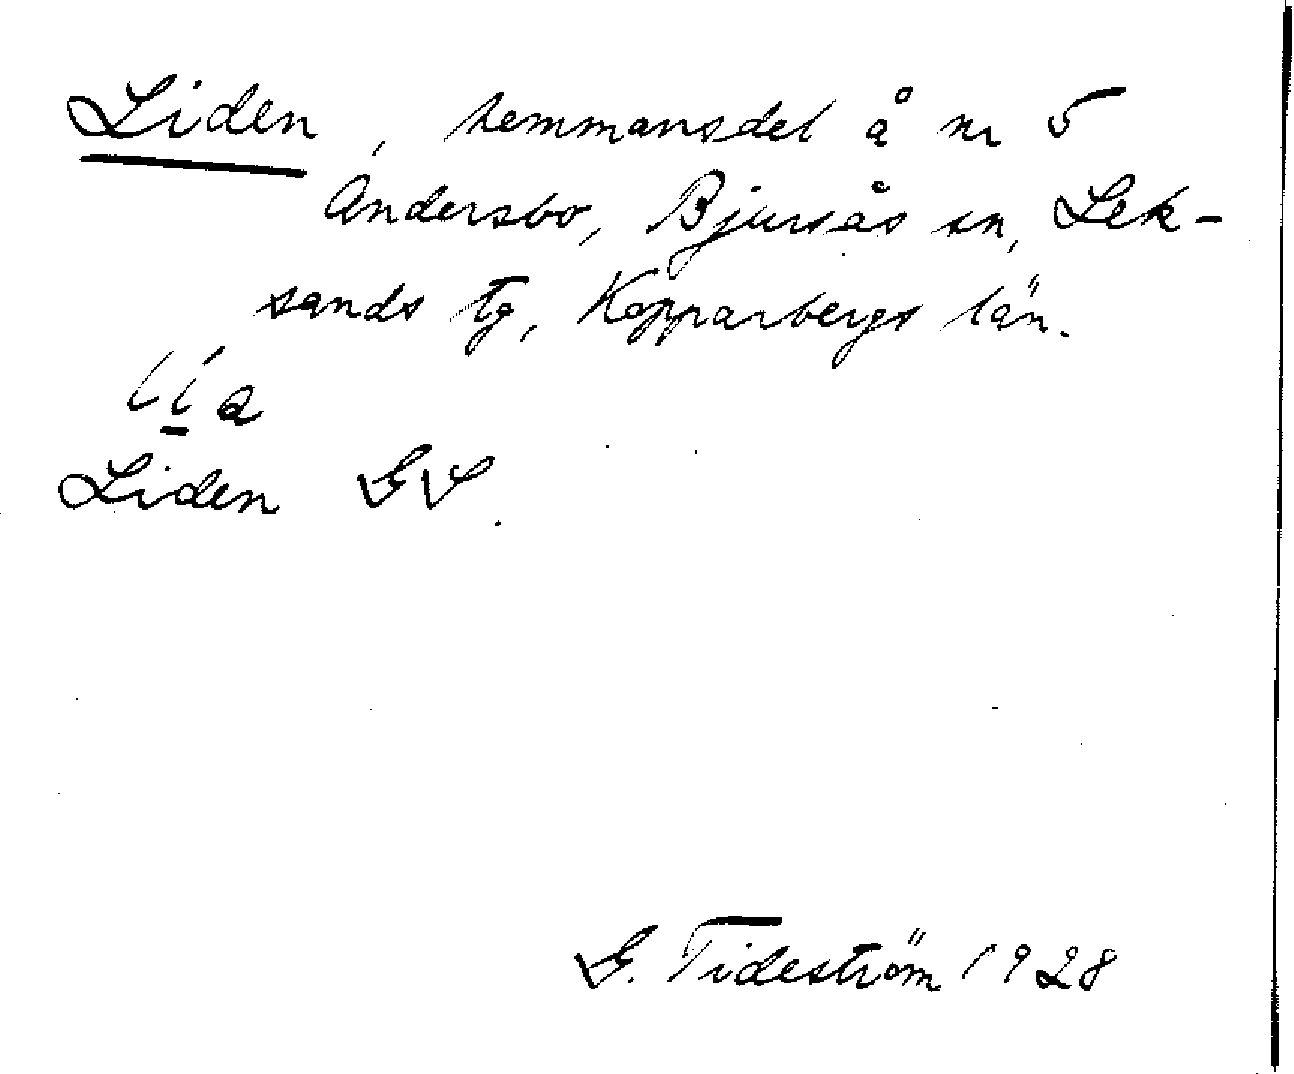 Liden, hemmansdel å nr 5
Andersbo, Bjursås sn, Lek-
sands tg, Kopparbergs län.
Liden
G. Tideström 1928